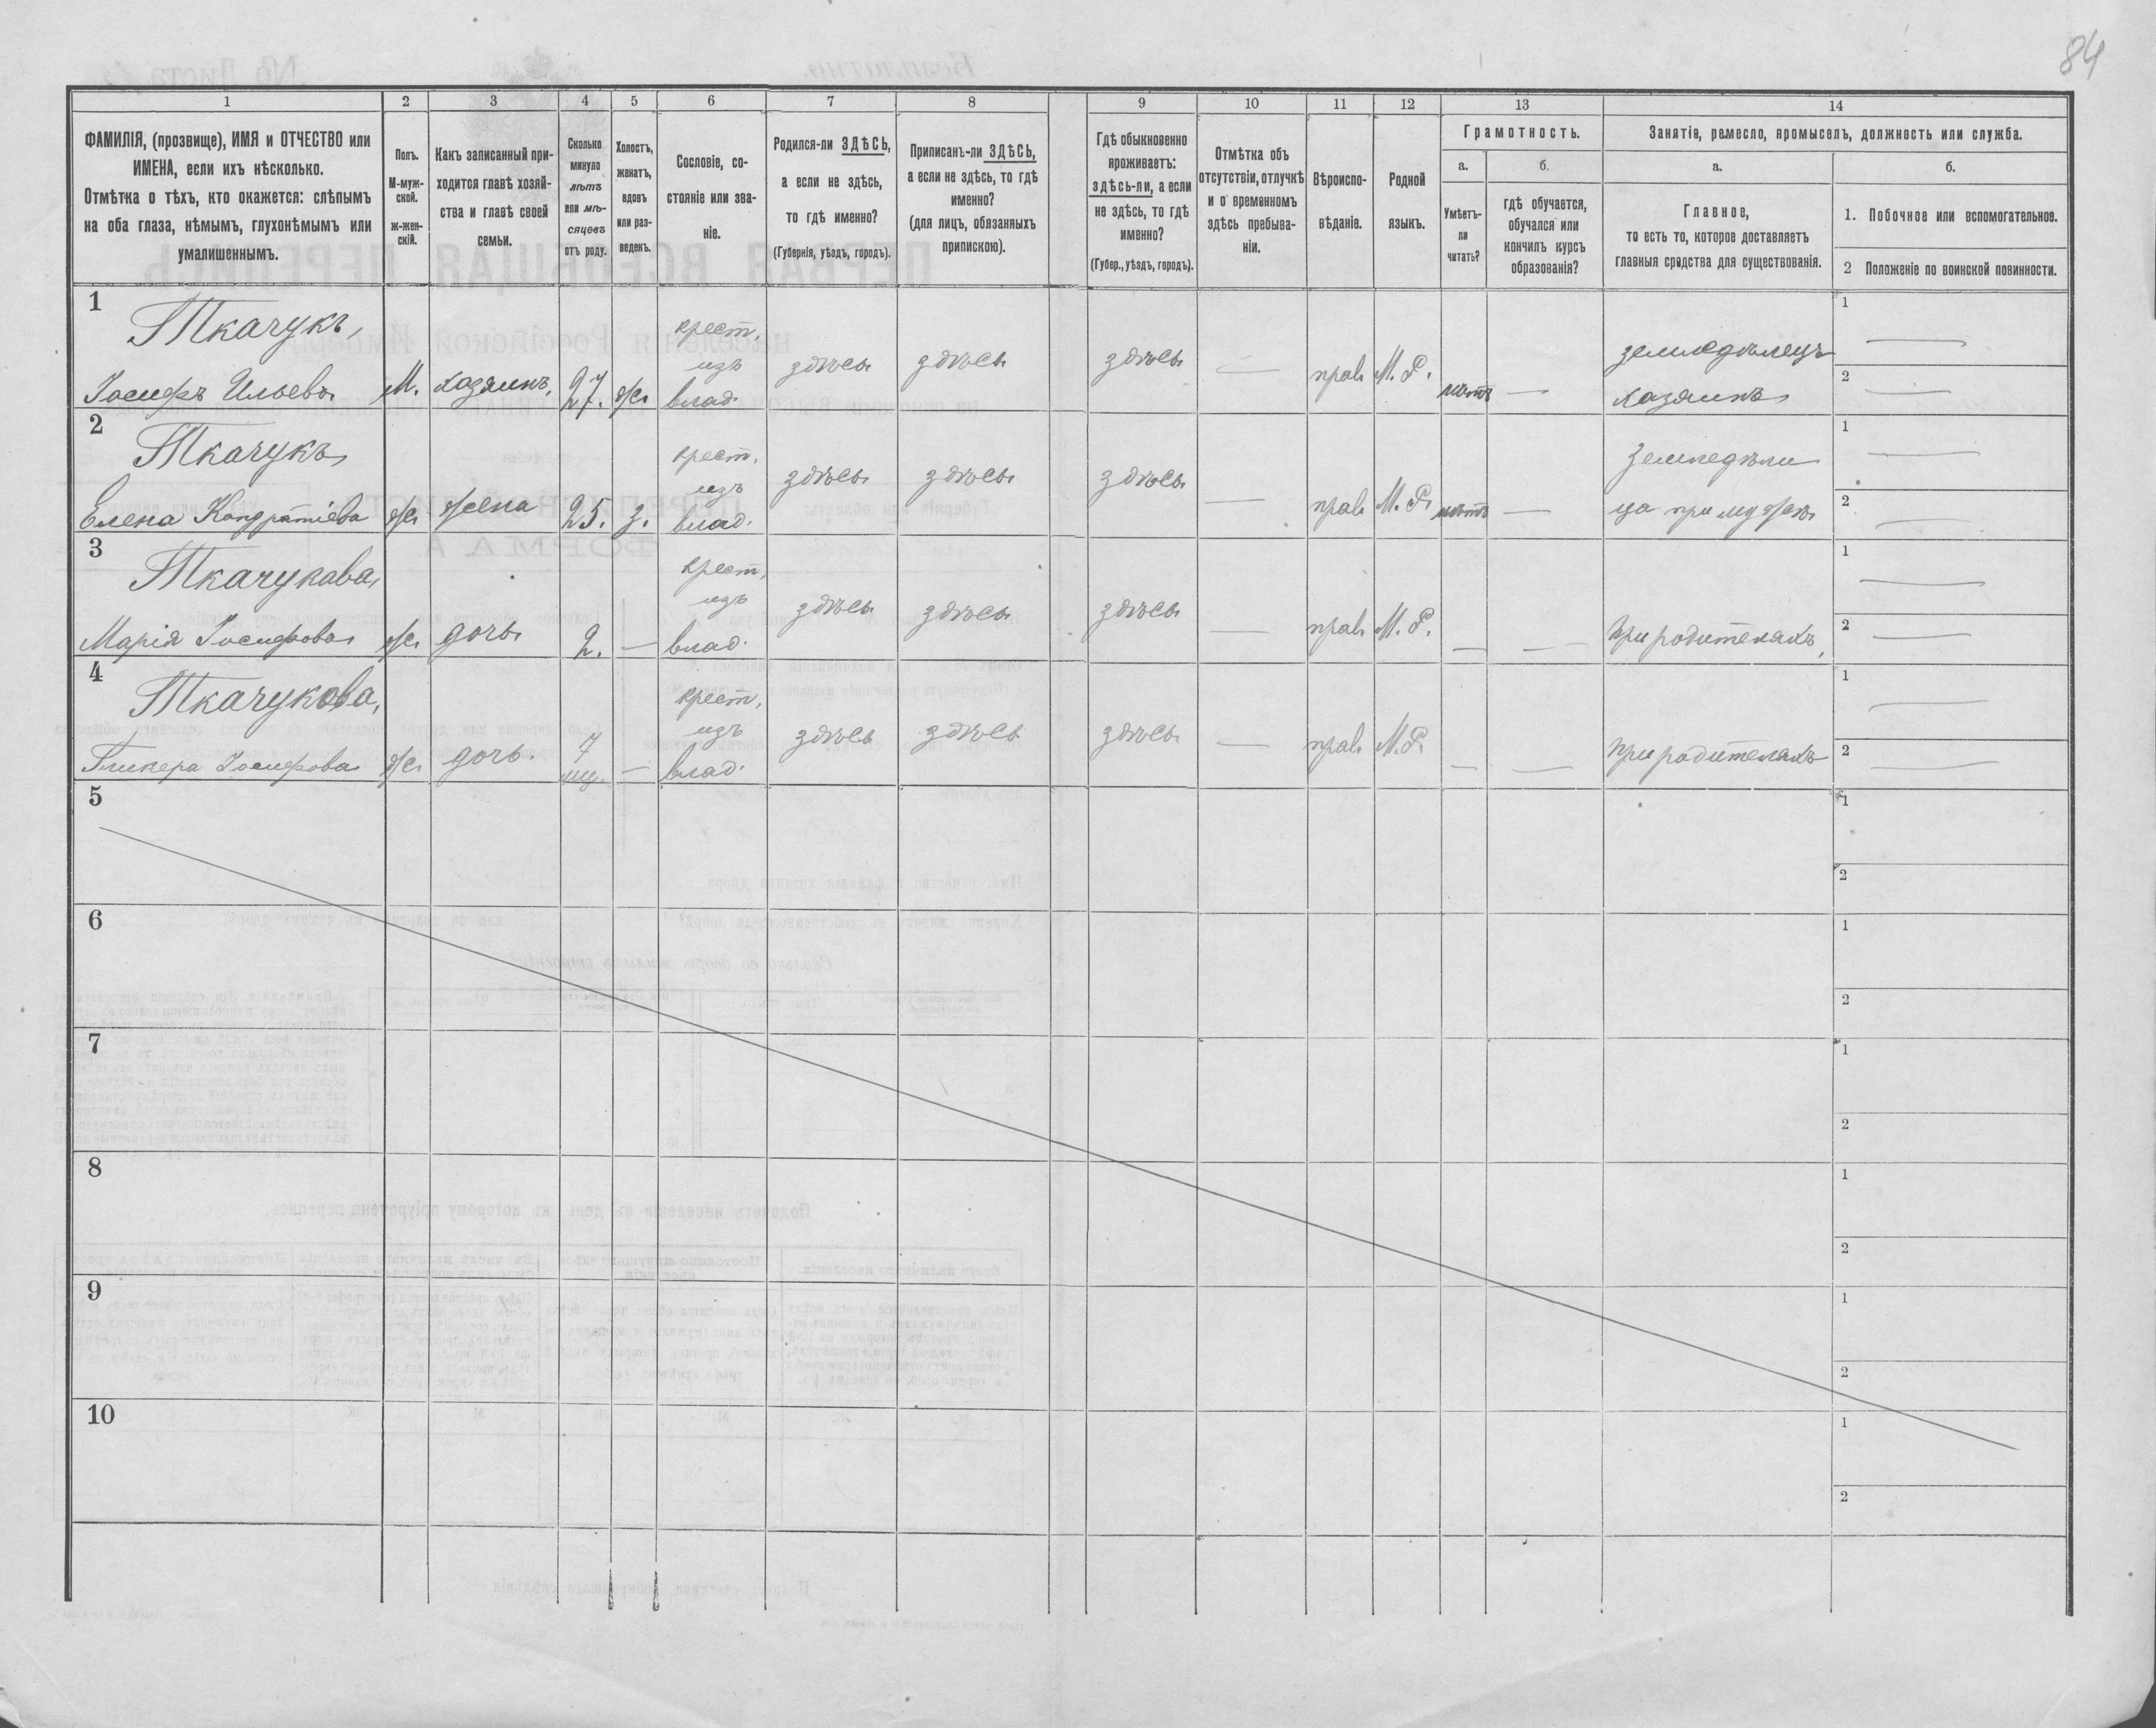 84
1 2 3 4 5 6 7 8 9 10 11 12 13 14
ФАМИЛІЯ, (прозвище), ИМЯ и ОТЧЕСТВО или
ИМЕНА, если ихъ нѣсколько.
Отмѣтка о тѣхъ, кто окажется: слѣпымъ
на оба глаза, нѣмымъ, глухонѣмымъ или
умалишеннымъ.
Полъ.
М-муж-
ской.
ж-жен-
скій.
Какъ записанный при-
ходится главѣ хозяй-
ства и главѣ своей
семьи.
Сколько
минуло
лѣтъ
или мѣ-
сяцевъ
отъ роду.
Холостъ,
женатъ,
вдовъ
или раз-
веденъ.
Сословіе, со-
стояніе или зва-
ніе.
Родился-ли ЗДѢСЬ,
а если не здѣсь,
то гдѣ именно?
(Губернія, уѣздъ, городъ).
Приписанъ-ли ЗДѢСЬ,
а если не здѣсь, то гдѣ
именно?
(для лицъ, обязанныхъ
припискою).
Гдѣ обыкновенно
проживаетъ:
здѣсь-ли, а если
не здѣсь, то гдѣ
именно?
(Губер., уѣздъ, городъ).
Отмѣтка объ
отсутствіи, отлучкѣ
и о временномъ
здѣсь пребыва-
ніи.
Вѣроиспо-
вѣданіе.
Родной
языкъ.
Грамотность.
а.
Умѣетъ-
ли
читать?
б.
гдѣ обучается,
обучался или
кончилъ курсъ
образованія?
Занятіе, ремесло, промыселъ, должность или служба.
а.
Главное,
то есть то, которое доставляетъ
главныя средства для существованія.
б.
1. Побочное или вспомогательное.
2 Положеніе по воинской повинности.
1
Ткачукъ,
Іосифъ Ильевъ
М.
хозяинъ,
27.
ж
крест.
изъ
влад.
здѣсь
здѣсь
здѣсь
—
прав
М. Р.
нѣтъ
—
земледѣлецъ
хозяинъ
1 —
2 —
2
Ткачукъ
Елена Кондратіева
ж
жена
25.
з.
крест.
изъ
влад.
здѣсь
здѣсь
здѣсь
—
прав
М. Р.
нѣтъ
—
земледѣли
ца при мужѣ
1 —
2 —
3
Ткачукова,
Марія Іосифова
ж
дочь
2.
—
крест,
изъ
влад.
здѣсь
здѣсь
здѣсь
—
прав
М. Р.
—
—
При родителяхъ,
1 —
2 —
4
Ткачукова,
Гликера Іосифова
ж
дочь.
7
мц.
—
крест,
изъ
влад.
здѣсь
здѣсь
здѣсь
—
прав
М. Р.
—
—
При родителяхъ
1 —
2 —
5
1
2
6
1
2
7
1
2
8
1
2
9
1
2
10
1
2